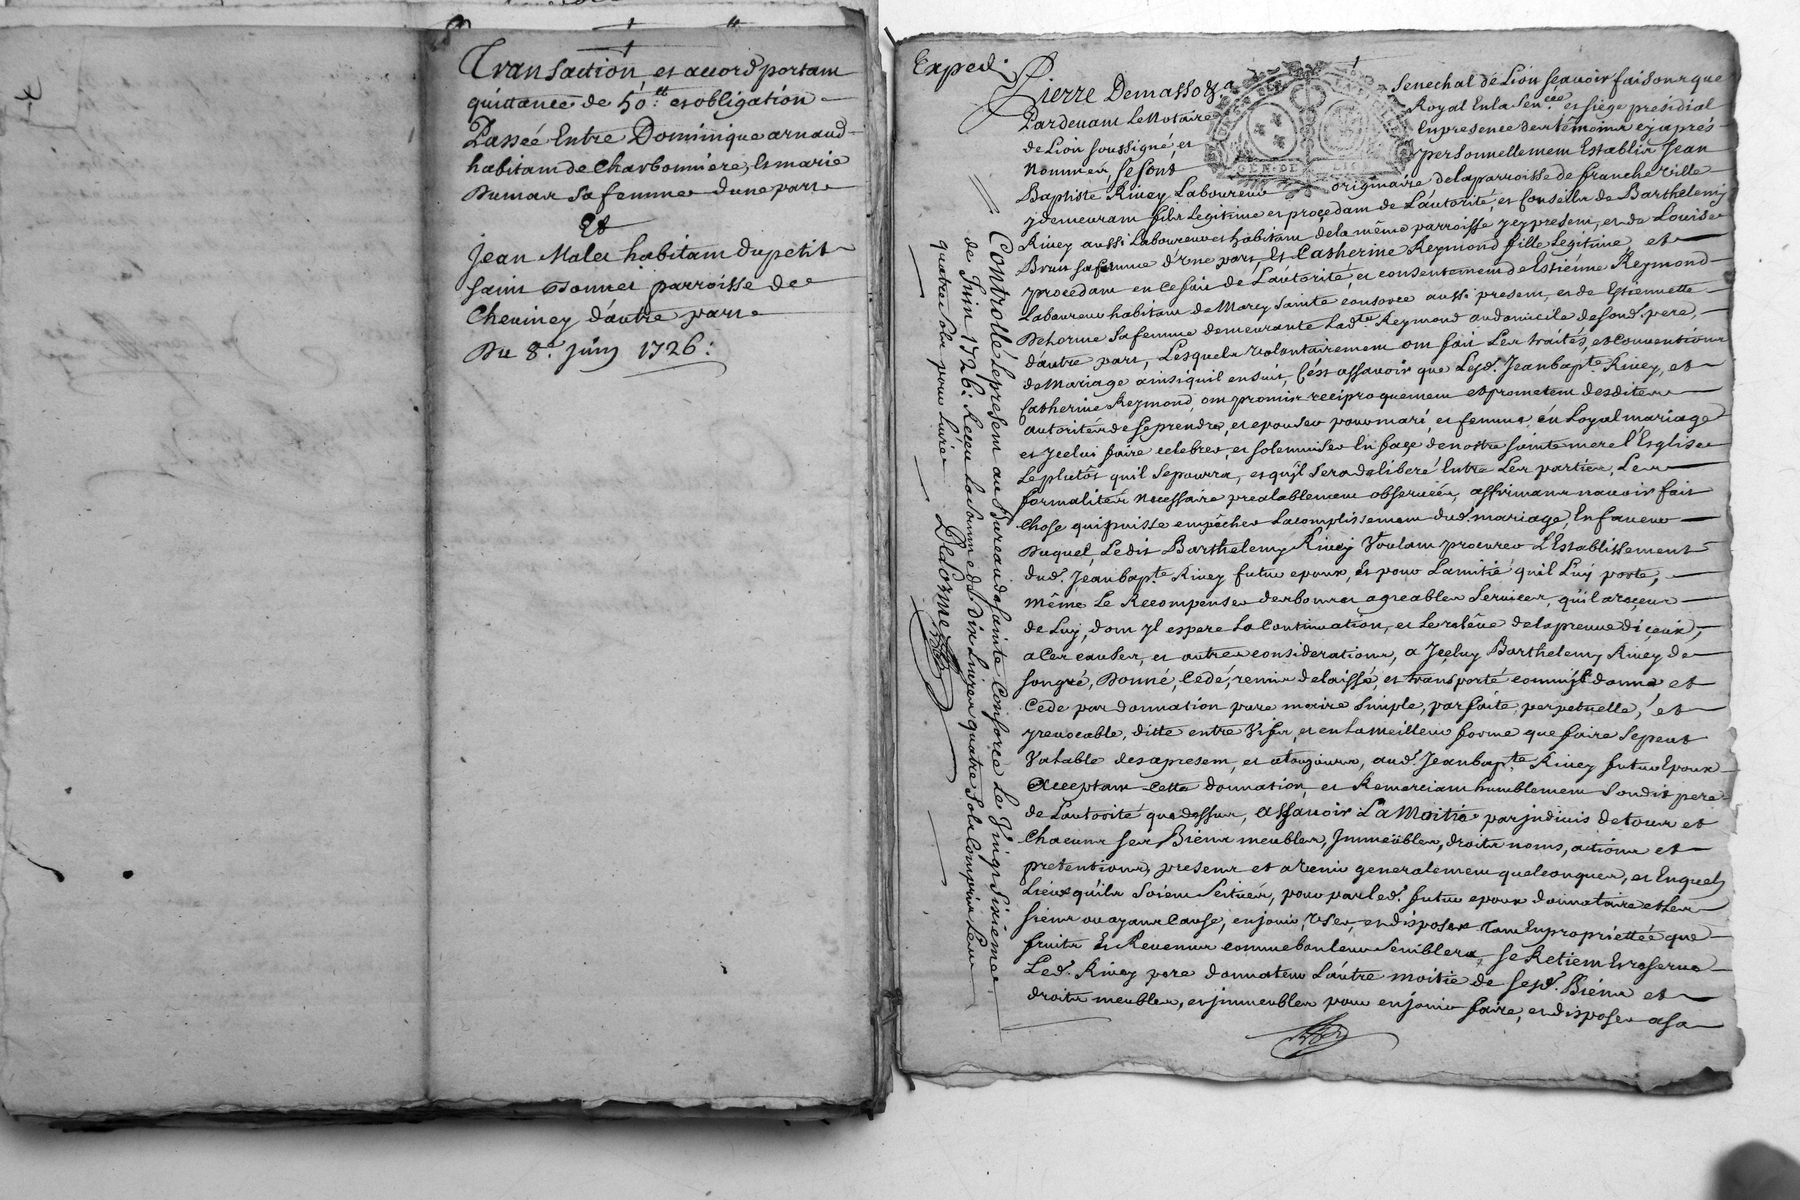 Transaction et accord portant
quittance de 50.tt et obligation
Passée Entre Dominique arnaud
habitant de Charbonniere, Et marie
Dumas sa femme d'une part
Et
Jean Molei habitant du petit
saint Bonnet parroisse de
Cheviney d'autre part
Du 8.e juin 1726:
Exped.
Pierre Demassoz Senechal de Lion Sçavoir faisons que
Pardevant Le Notaire Royal En la Sen.cée et siége présidial
de Lion soussigné, et En presence des témoins cy aprés
Nommés, se sont personnellement Establis Jean
Baptiste Rivey Laboureur originaire de la parroisse de francheville
y demeurant fils Legitime et procedant de L'autorité, et Conseille de Barthelemy
Rivey aussi Laboureur et habitant de la même parroisse y cy present, et de Louise
Brun sa femme d'Une part, Et Catherine Reymond fille Legitime, et
procedant en ce fait de L'autorité, et consentement de Estiénne Reymond
Laboureur habitant de Marcy Sainte consorce aussi present, et de Estiennette
Delorme sa femme demeurante Lad.te Reymond au domicile de sond. pere,
d'autre part, Lesquels volontairement ont fait Les traités, et conventions
de Mariage ainsi qu'il ensuit, C'est assavoir que Lesd. Jean bap.te Rivey, et
Catherine Reymond, ont promis reciproquement et promettent desdites
autorités de se prendre, et epouser pour mari, et femme, en Loyal mariage
et Jcelui faire celebrer, et solemniser En façe de nostre sainte mere l'Eglise
Le plutôt qu'il se pourra, et qu'il sera deliberé Entre Les parties, Les
formalités Necessaire prealablement observées, affirmans n'avoir fait
Chose qui puisse empêcher Lacomplissement dud. mariage, En faveur
Duquel, Ledit Barthelemy Rivey Voulant procurer L'Establissement
dud. Jean bap.te Rivey futur epoux, Et pour L'amitié qu'il Luy porte,
même Le Recompenser des bons et agreables Services, qu'il a reçeu
de Luy, dont Jl espere La Continuation, et Le reléve de la preuve diçeux,
a Ces causes, et autres considerations, a Jçeluy Barthelemy Rivey de
son gré, Donné, Cédé, remis delaissé, et transporté comm'il donne et
Cede par donnation pure moire simple, parfaite, perpetuelle, et
yrevocable, ditte entre Vifs, et en La meilleur forme que faire se peut
Valable des apresent, et a toujours, aud. Jean bap.te Rivey futur Epoux
Acceptant cette donnation, et Remerciant humblement Sondit pere
de L'autorité que dessus, assavoir La Moitie par jndivis de tous et
Chacuns ses Biens meubles, Jmmeubles, droits noms, actions et
pretentions, presens et a Venir generalement quelconques, et En quels
Lieux qu'ils Soient Scitués, pour par led. futur epoux donnataire et Les
siens ou ayans Cause, en jouir, Vser, et disposer tant En proprieteé que
fruits Et Revenus comme bon leur Semblera, se Retient Et reserve
Led. Rivey pere donnateur L'autre moitie de sesd. Biéns et
droits meubles, et jmmeubles pour en jouir faire, et disposer a sa
Controllé le present au Bureau de Sainte Consorce Le Vingt Sixieme
de Juin 1726: Receu La Somme de Dix Livres quatre sols Compris Les
quatre sols pour Livre
Delorme